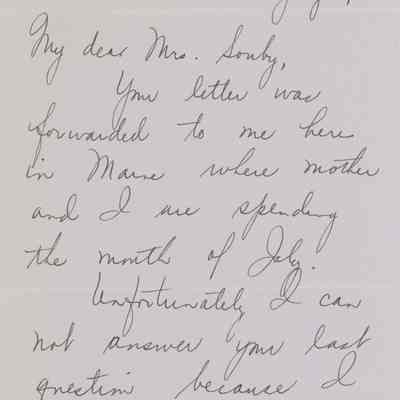 My dear Mrs. Sonby,
Your letter was
forwarded to me here
in Maine where mother
and I are spending
the month of July.
Unfortunately I can
not answer your last
question because I